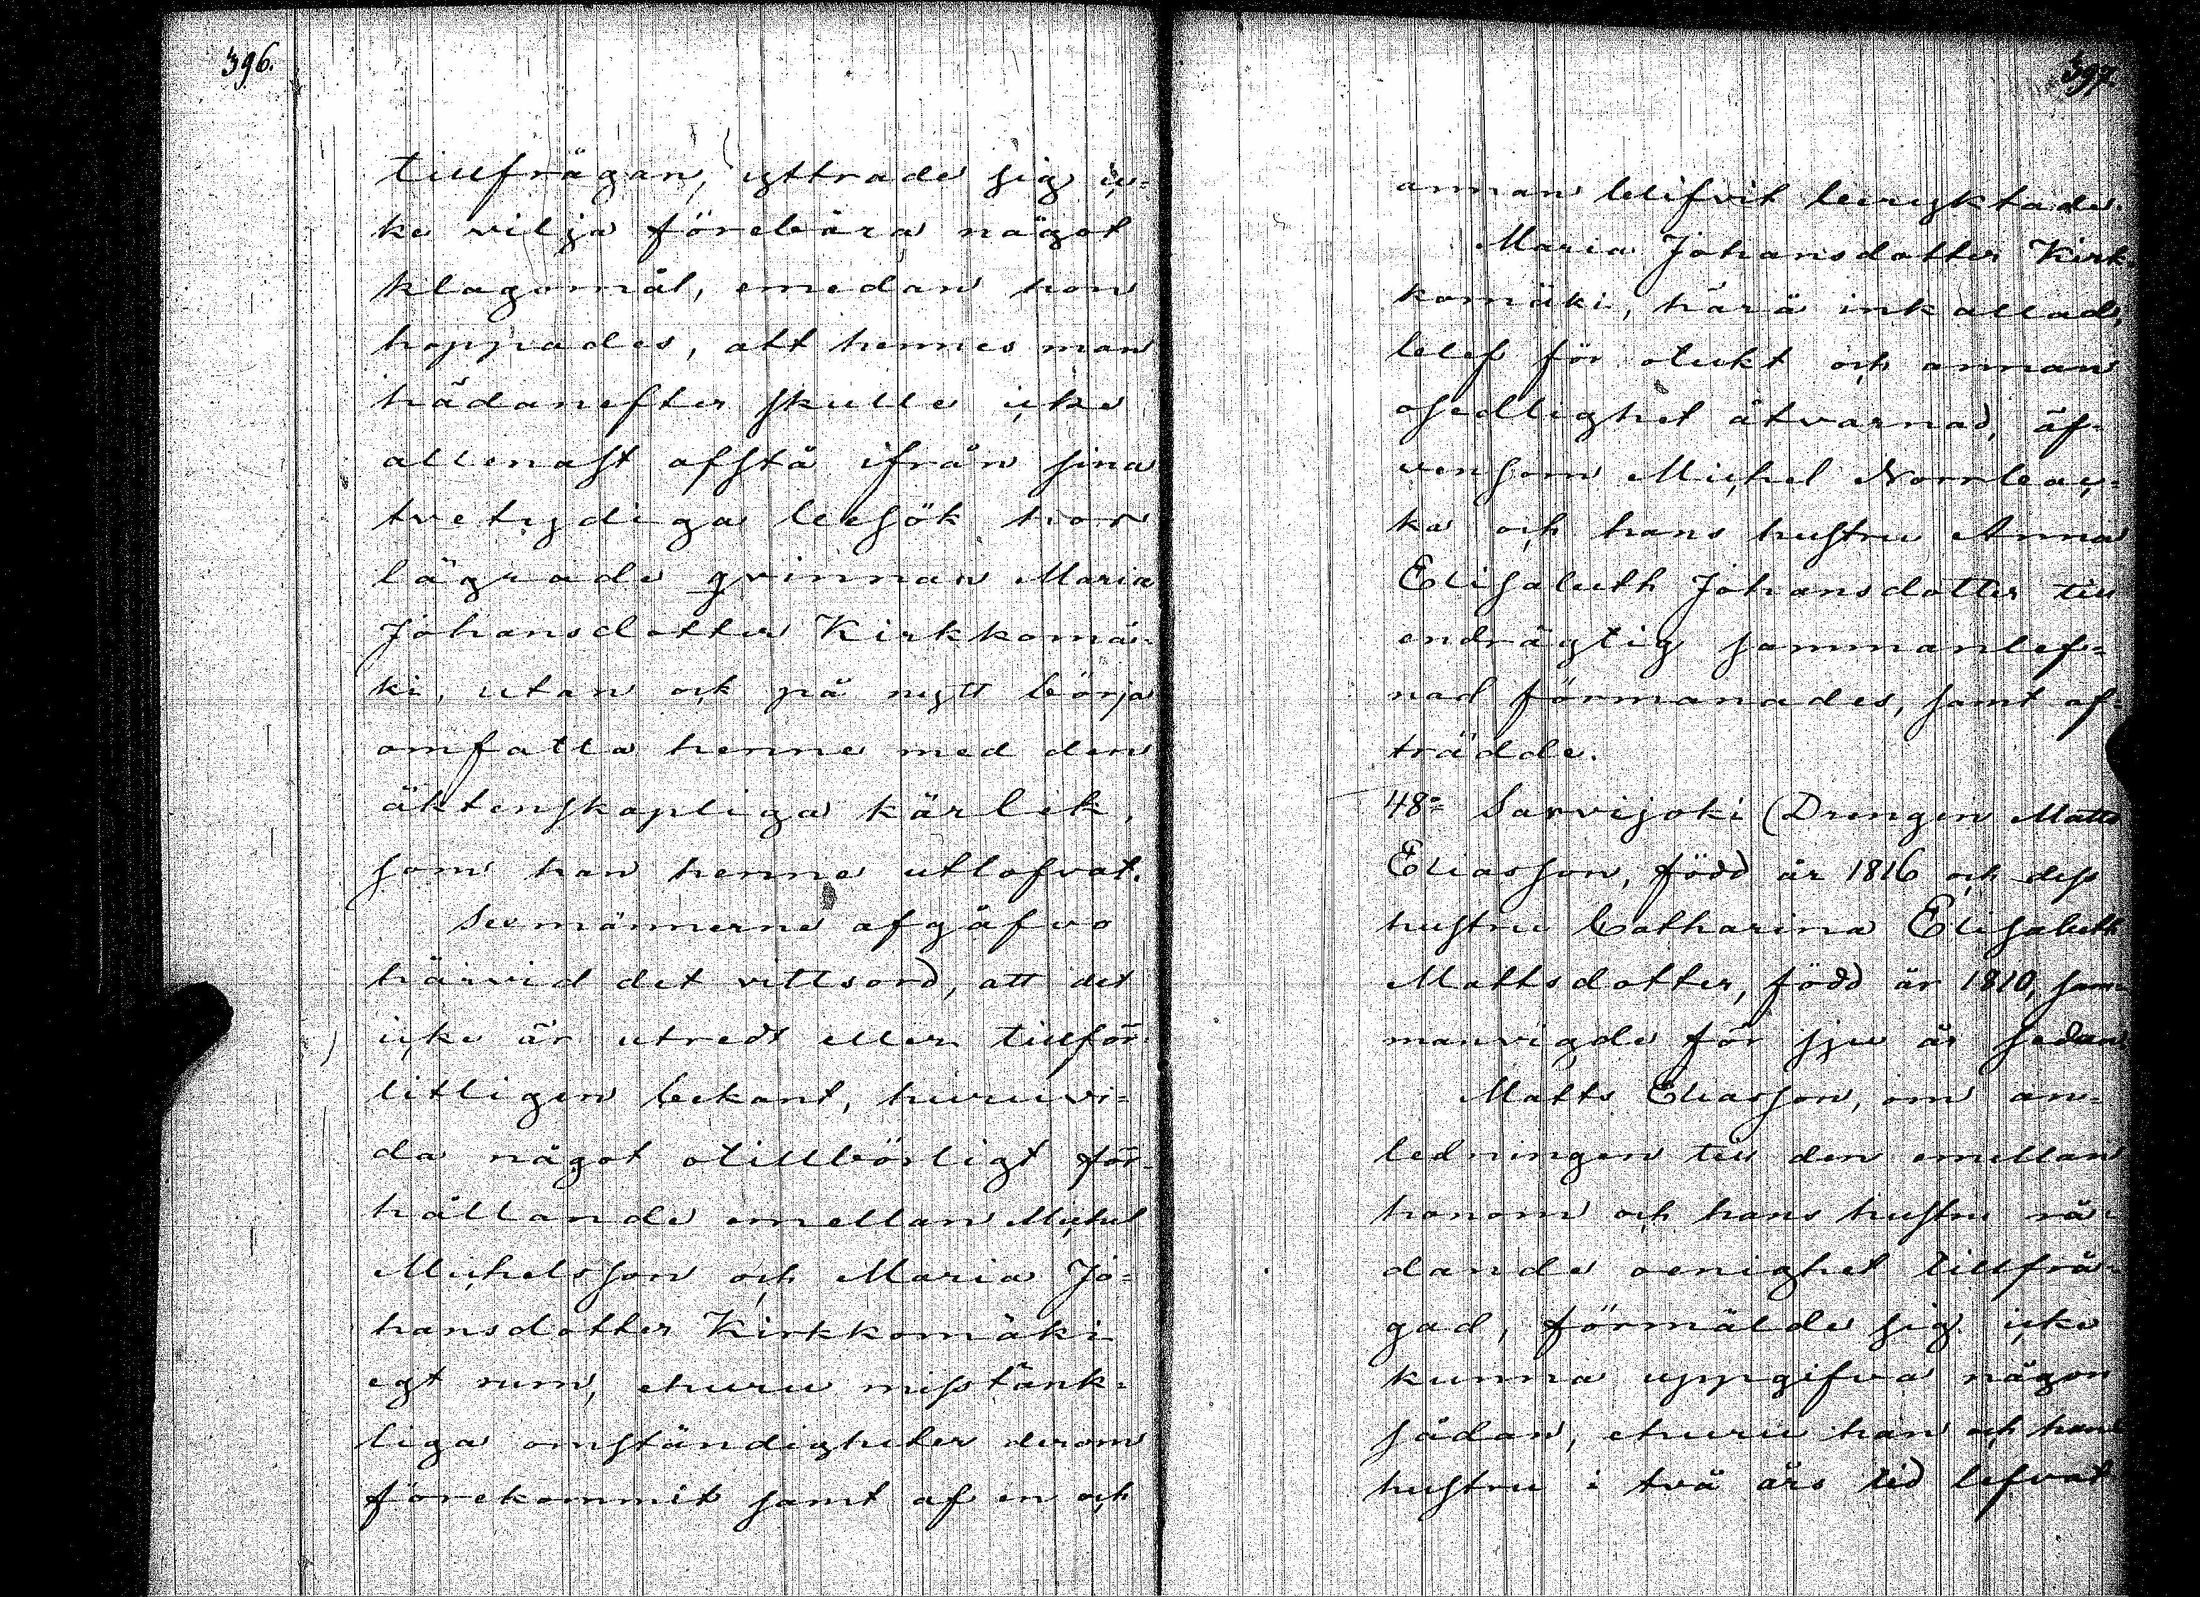 396.
tillfrågan, yttrade sig ic=
ke vilja förebära något
klagomål, emedan hon
hoppades, att hennes man
hädanefter skulle icke
allenast afstå ifrån sina
tvetydiga besök hos
lägrade qvinnan Maria
Johansdotter Kirkkomä=
ki, utan ock på nytt börja
omfatta henne med den
äktenskapliga kärlek,
som han henne utlofvat.
Sexmännerne afgåfvo
härvid det vittsord, att det
icke är utredt eller tillför=
litligen bekant, huruvi=
da något otillbörligt för=
hållande emellan Michel
Michelsson och Maria Jo=
hansdotter Kirkkomäki
egt rum, ehuru misstänk=
liga omständigheter derom
förekommit samt af en och
397.
annan blifvit beryktade.
Maria Johansdotter Kirk=
komäki, härå inkallad,
blef för otukt och annan
osedlighet åtvarnad, äf=
vensom Michel Norrbac=
ka och hans hustru Anna
Elisabeth Johansdotter till
endrägtig sammanlef=
nad förmanades, samt af=
trädde.
48= Sarvijoki (Drengen Matts
Eliasson, född år 1816 och dess
hustru Catharina Elisabeth
Mattsdotter, född år 1810, sam=
manvigde för sju år sedan
Matts Eliasson, om an=
ledningen till den emellan
honom och hans hustru rå=
dande oenighet tillfrå=
gad, förmälde sig icke
kunna uppgifva någon
sådan, ehuru han och hans
hustru i två års tid lefvat